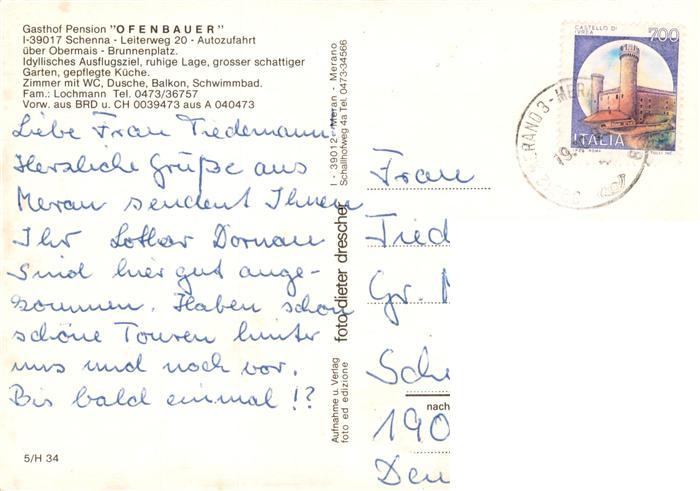 Gasthof Pension "OFENBAUER"
I-39017 Schenna - Leiterweg 20 - Autozufahrt
über Obermais - Brunnenplatz.
Idyllisches Ausflugsziel, ruhige Lage, grosser schattiger
Garten, gepflegte Küche.
Zimmer mit WC, Dusche, Balkon, Schwimmbad.
Fam.: Lochmann Tel. 0473/36757
Vorw. aus BRD u. CH 0039473 aus A 040473
Liebe Frau Tiedemann
Herzliche Grüße aus
Meran sendent Ihnen
Ihr Lothar Dornau
Sind hier gut ange-
kommen. Haben schon
schöne Touren hinter
uns und noch vor.
Bis bald einmal !?
5/H 34
I - 39012 - Meran - Merano
Schallhofweg 4a Tel. 0473-34566
foto dieter drescher
Aufnahme u. Verlag
foto ed edizione
CASTELLO DI
IVREA
700
ITALIA
MERANO 3 - MERA
19
Frau
Tied
Gr.
Sch
nach
190
Deu